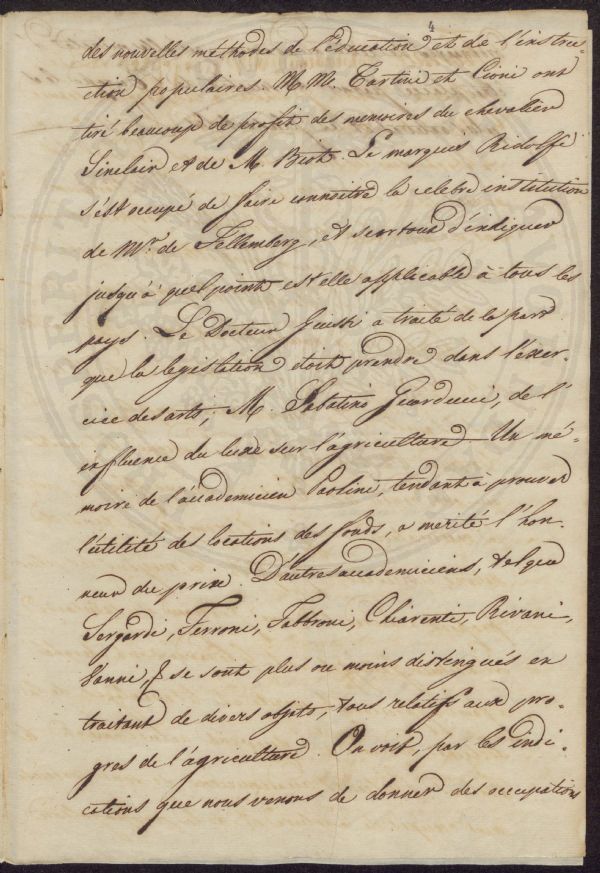 4
des nouvelles methodes de l'éducation et de l'instru-
ction populaires. M.M. Tartini et Cioni ont
tiré beaucoup de profit des memoires du chevalier
Sinclair et de M. Biot. Le marquis Ridolfi
s'est occupé de faire connoitre la celebre institution
de Mr. de Fellemberg, et surtout d'indiquer
jusqu'à quel point est elle applicable à tous les
pays. Le Docteur Giusti a traité de la part
que la legislation doit prendre dans l'exer-
cice des arts, M. Sabatino Guarducci, de l'
influence du luxe sur l'agriculture. Un mé-
moire de l'academicien Paolini, tendant à prouver
l'utilité des locations des fonds, a merité l'hon-
neur du prix. D'autres academiciens, tels que
Sergardi, Ferroni, Fabbroni, Chiarenti,
se sont plus ou moins distingués en
traitant de divers objets, tous relatifs aux pro-
gres de l'agriculture. On voit, par les indi-
cations que nous venons de donner des occupations